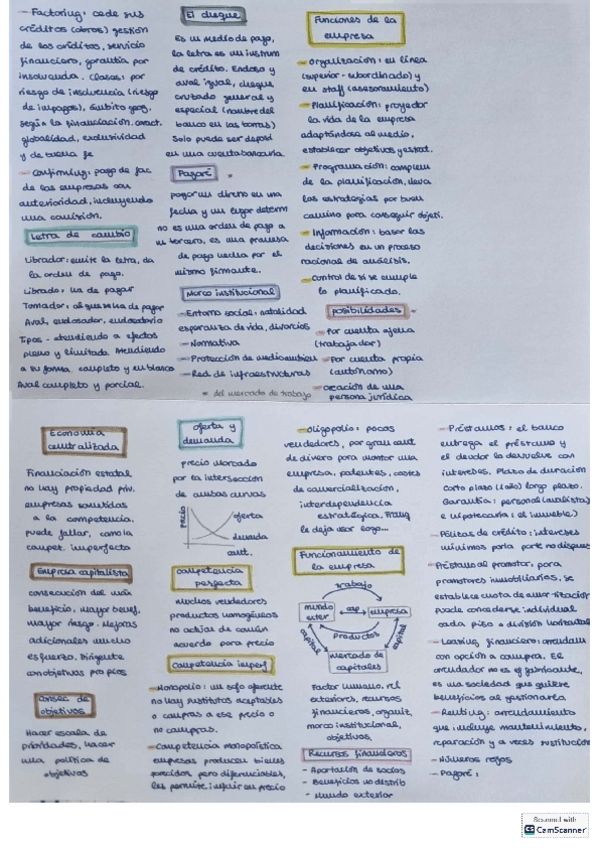 - Factoring: cede sus
créditos (cobros) gestión
de los créditos, servicio
financiero, garantía por
insolvencia. Clases: por
riesgo de insolvencia (riesgo
de impagos), ámbito geog,
según la financiación,
globalidad, exclusividad
y de buena fe
- Confirming: pago de fac
de las empresas con
anterioridad, incluyendo
una comisión.
Letra de cambio
Librador: emite la letra, da
la orden de pago.
Librado: ha de pagar
Tomador: al que se ha de pagar
Aval, endosador, endosatario
Tipos - atendiendo a efectos
pleno y limitada. Atendiendo
a su forma completo y en blanco
Aval completo y parcial.
El cheque
Es un medio de pago,
la letra es un instrum
de crédito. Endoso y
aval igual, cheque
cruzado general y
especial (nombre del
banco en las barras)
Solo puede ser deposi
en una cuenta bancaria.
Pagaré
pagar un dinero en una
fecha y un lugar determ
no es una orden de pago a
un tercero, es una promesa
de pago hecha por el
mismo firmante.
Marco institucional
- Entorno social: natalidad
esperanza de vida, divorcios
- Normativa
- Protección de medioambien
- Red de infraestructuras
* del mercado de trabajo
Funciones de la
empresa
- Organización: en línea
(superior - subordinado) y
en staff (asesoramiento)
- Planificación: proyectar
la vida de la empresa
adaptándose al medio,
establecer objetivos y estrat.
- Programación: complem
de la planificación, lleva
las estrategias por buen
camino para conseguir objeti.
- Información: basar las
decisiones en un proceso
racional de análisis.
- Control de si se cumple
lo planificado.
Posibilidades
- Por cuenta ajena
(trabajador)
- Por cuenta propia
(autónomo)
- Creación de una
persona jurídica
Economía
centralizada
Financiación estatal
no hay propiedad priv.
empresas sometidas
a la competencia.
puede fallar, como la
compet. imperfecta
Empresa capitalista
consecución del máx
beneficio, mayor benef,
mayor riesgo. Mejoras
adicionales mucho
esfuerzo. Dirigente
con objetivos propios
Consec de
objetivos
Hacer escala de
prioridades, hacer
una política de
objetivos
Oferta y
demanda
precio marcado
por la intersección
de ambas curvas
precio
oferta
demanda
cant.
Competencia
perfecta
muchos vendedores
productos homogéneos
no actúan de común
acuerdo para precio
Competencia imperf
- Monopolio: un solo oferente
no hay sustitutos aceptables
o compras a ese precio o
no compras.
- Competencia monopolística
empresas producen bienes
parecidos, pero diferenciables,
les permite influir en precio
- Oligopolio: pocos
vendedores, por gran cant
de dinero para montar una
empresa, patentes, costes
de comercialización,
interdependencia
estratégica.
le deja usar logo...
Funcionamiento de
la empresa
trabajo
mundo
exter
empresa
productos
capital
capital
mercado de
capitales
Factor humano, rel
exteriores, recursos
financieros, organiz,
marco institucional,
objetivos,
Recursos financieros
- Aportación de socios
- Beneficios no distrib
- Mundo exterior
- Préstamos: el banco
entrega el préstamo y
el deudor lo devuelve con
intereses. Plazo de duración
Corto plazo (1año) largo plazo.
Garantía: personal (avalista)
e hipotecaria (el inmueble)
- Pólizas de crédito: intereses
mínimos por la parte no dispues
- Préstamo al promotor: para
promotores inmobiliarios, se
establece cuota de amortización
puede concederse individual
cada piso o división horizontal
- Leasing financiero: arrendam
con opción a compra. El
arrendador no es el fabricante,
es una sociedad que quiere
beneficios al gestionarla
- Renting: arrendamiento
que incluye mantenimiento,
reparación y a veces sustitución
- Números rojos
- Pagaré:
Scanned with
CS CamScanner